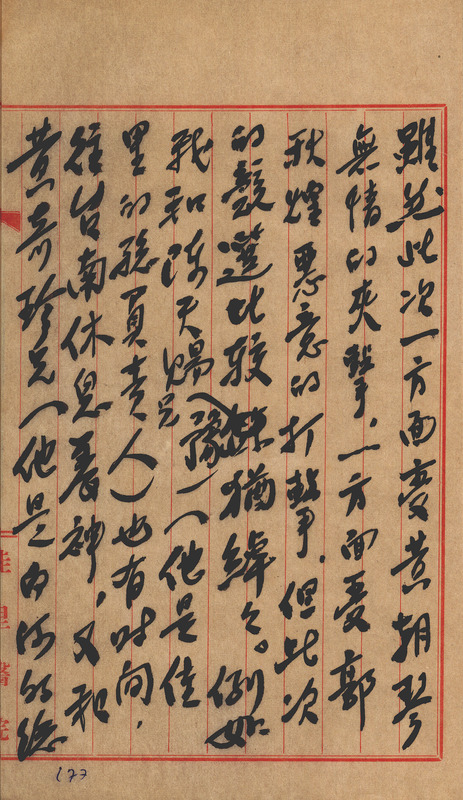 雖然此次一方面受黃朝琴
無情的夾擊,一方面受郭
秋煌惡意的打擊,但此次
的競選比較餘猶綽々。例如
我和陳天賜兄(豫)(他是佳
里的總負責人)也有时间,
往台南休息養神,又和
黃奇珍兄(他是白河的總
佳里醫院
177